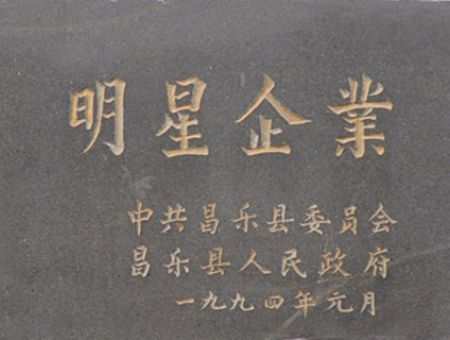 明星企業
中共昌乐县委员会
昌乐县人民政府
一九九四年元月